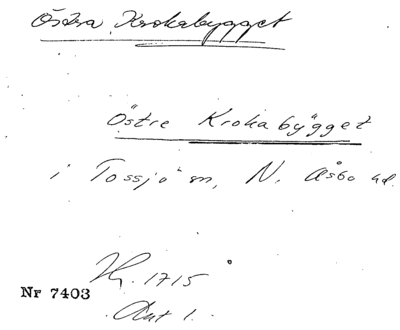 Östra Krokabygget
Östre Krokabygget
i Tossjö sn, N. Åsbo hd.
Hg. 1715
Nr 7403
Ant 1.